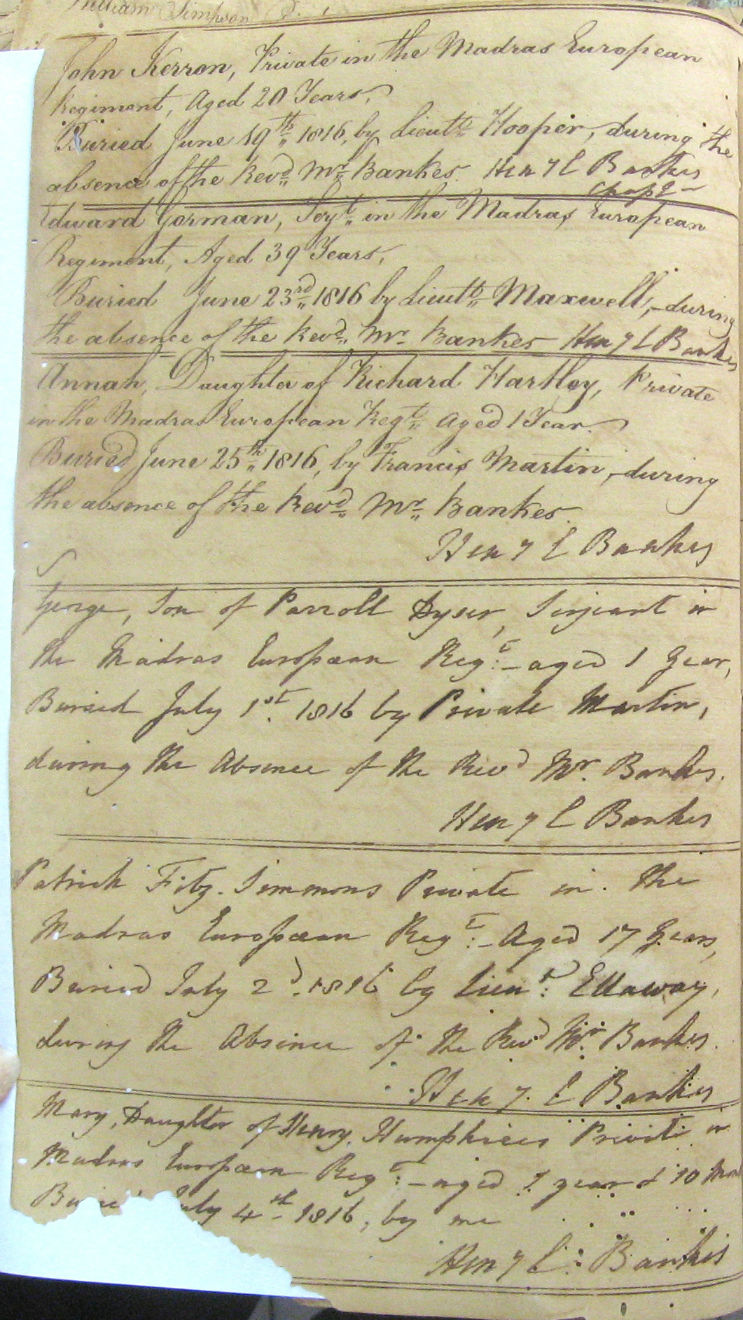 William Simpson
John Kerron, Private in the Madras European
Regiment, Aged 20 Years,
Buried June 19th 1816, by Lieutt Hooper, during the
absence of the Revd Mr Bankes. Hen y C Bankes
Chapn
Edward Gorman, Serjt in the Madras European
Regiment, Aged 39 Years,
Buried June 23rd 1816 by Lieutt Maxwell, during
the absence of the Revd Mr Bankes Hen y C Bankes
Annah, Daughter of Richard Hartley, Private
in the Madras European Regt Aged 1 Year.
Buried June 25th 1816, by Francis Martin, during
the absence of the Revd Mr Bankes.
Hen y C Bankes
George, Son of Parroll Dyser, Serjeant in
the Madras European Regt: aged 1 Year,
Buried July 1st. 1816 by Private Martin,
during the Absence of the Revd Mr. Bankes.
Hen y C Bankes
Patrick Fitz. Simmons Private in the
Madras European Regt: Aged 17 Years,
Buried July 2d. 1816 by Lieut: Ellaway,
during the Absence of the Revd Mr. Bankes.
Hen y. C Bankes
Mary, Daughter of Henry Humphries Private in
Madras European Regt: aged 1 year & 10 Mon
July 4th 1816, by me
Hen y C: Bankes